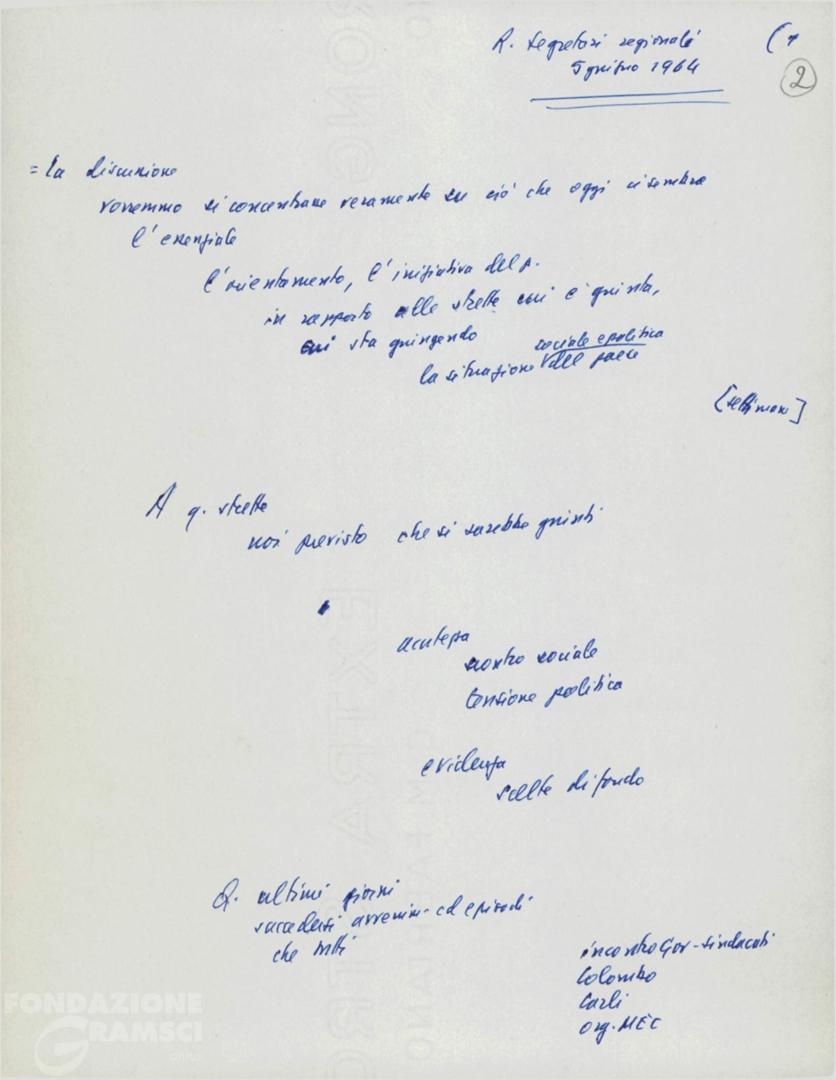 R. segretari regionali (1
5 giugno 1964
2
= La discussione
vorremmo si concentrasse veramente su ciò che oggi ci sembra
l'essenziale
l'orientamento, l'iniziativa del p.
in rapporto alle strette cui è giunta,
cui sta giungendo
sociale e politica
la situazione del paese
[settimane]
A q. strette
noi previsto che si sarebbe giunti
acutezza
scontro sociale
tensione politica
evidenza
scelte di fondo
Q. ultimi giorni
succedersi avvenim. ed episodi
che tutti
incontro Gov-sindacati
Colombo
Carli
org. MEC
FONDAZIONE
GRAMSCI